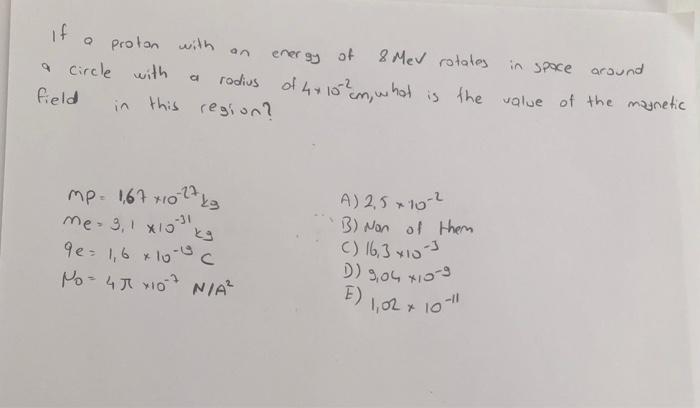 If a proton with an energy of 8 MeV rotates in space around
a circle with a radius of 4*10^-2 cm, what is the value of the magnetic
field in this region?
mp = 1,67 *10^-27 kg
me = 9,1 *10^-31 kg
qe = 1,6 * 10^-19 C
μ0 = 4π *10^-7 N/A²
A) 2,5 * 10^-2
B) Non of them
C) 16,3 *10^-3
D) 9,04 *10^-9
E) 1,02 * 10^-11